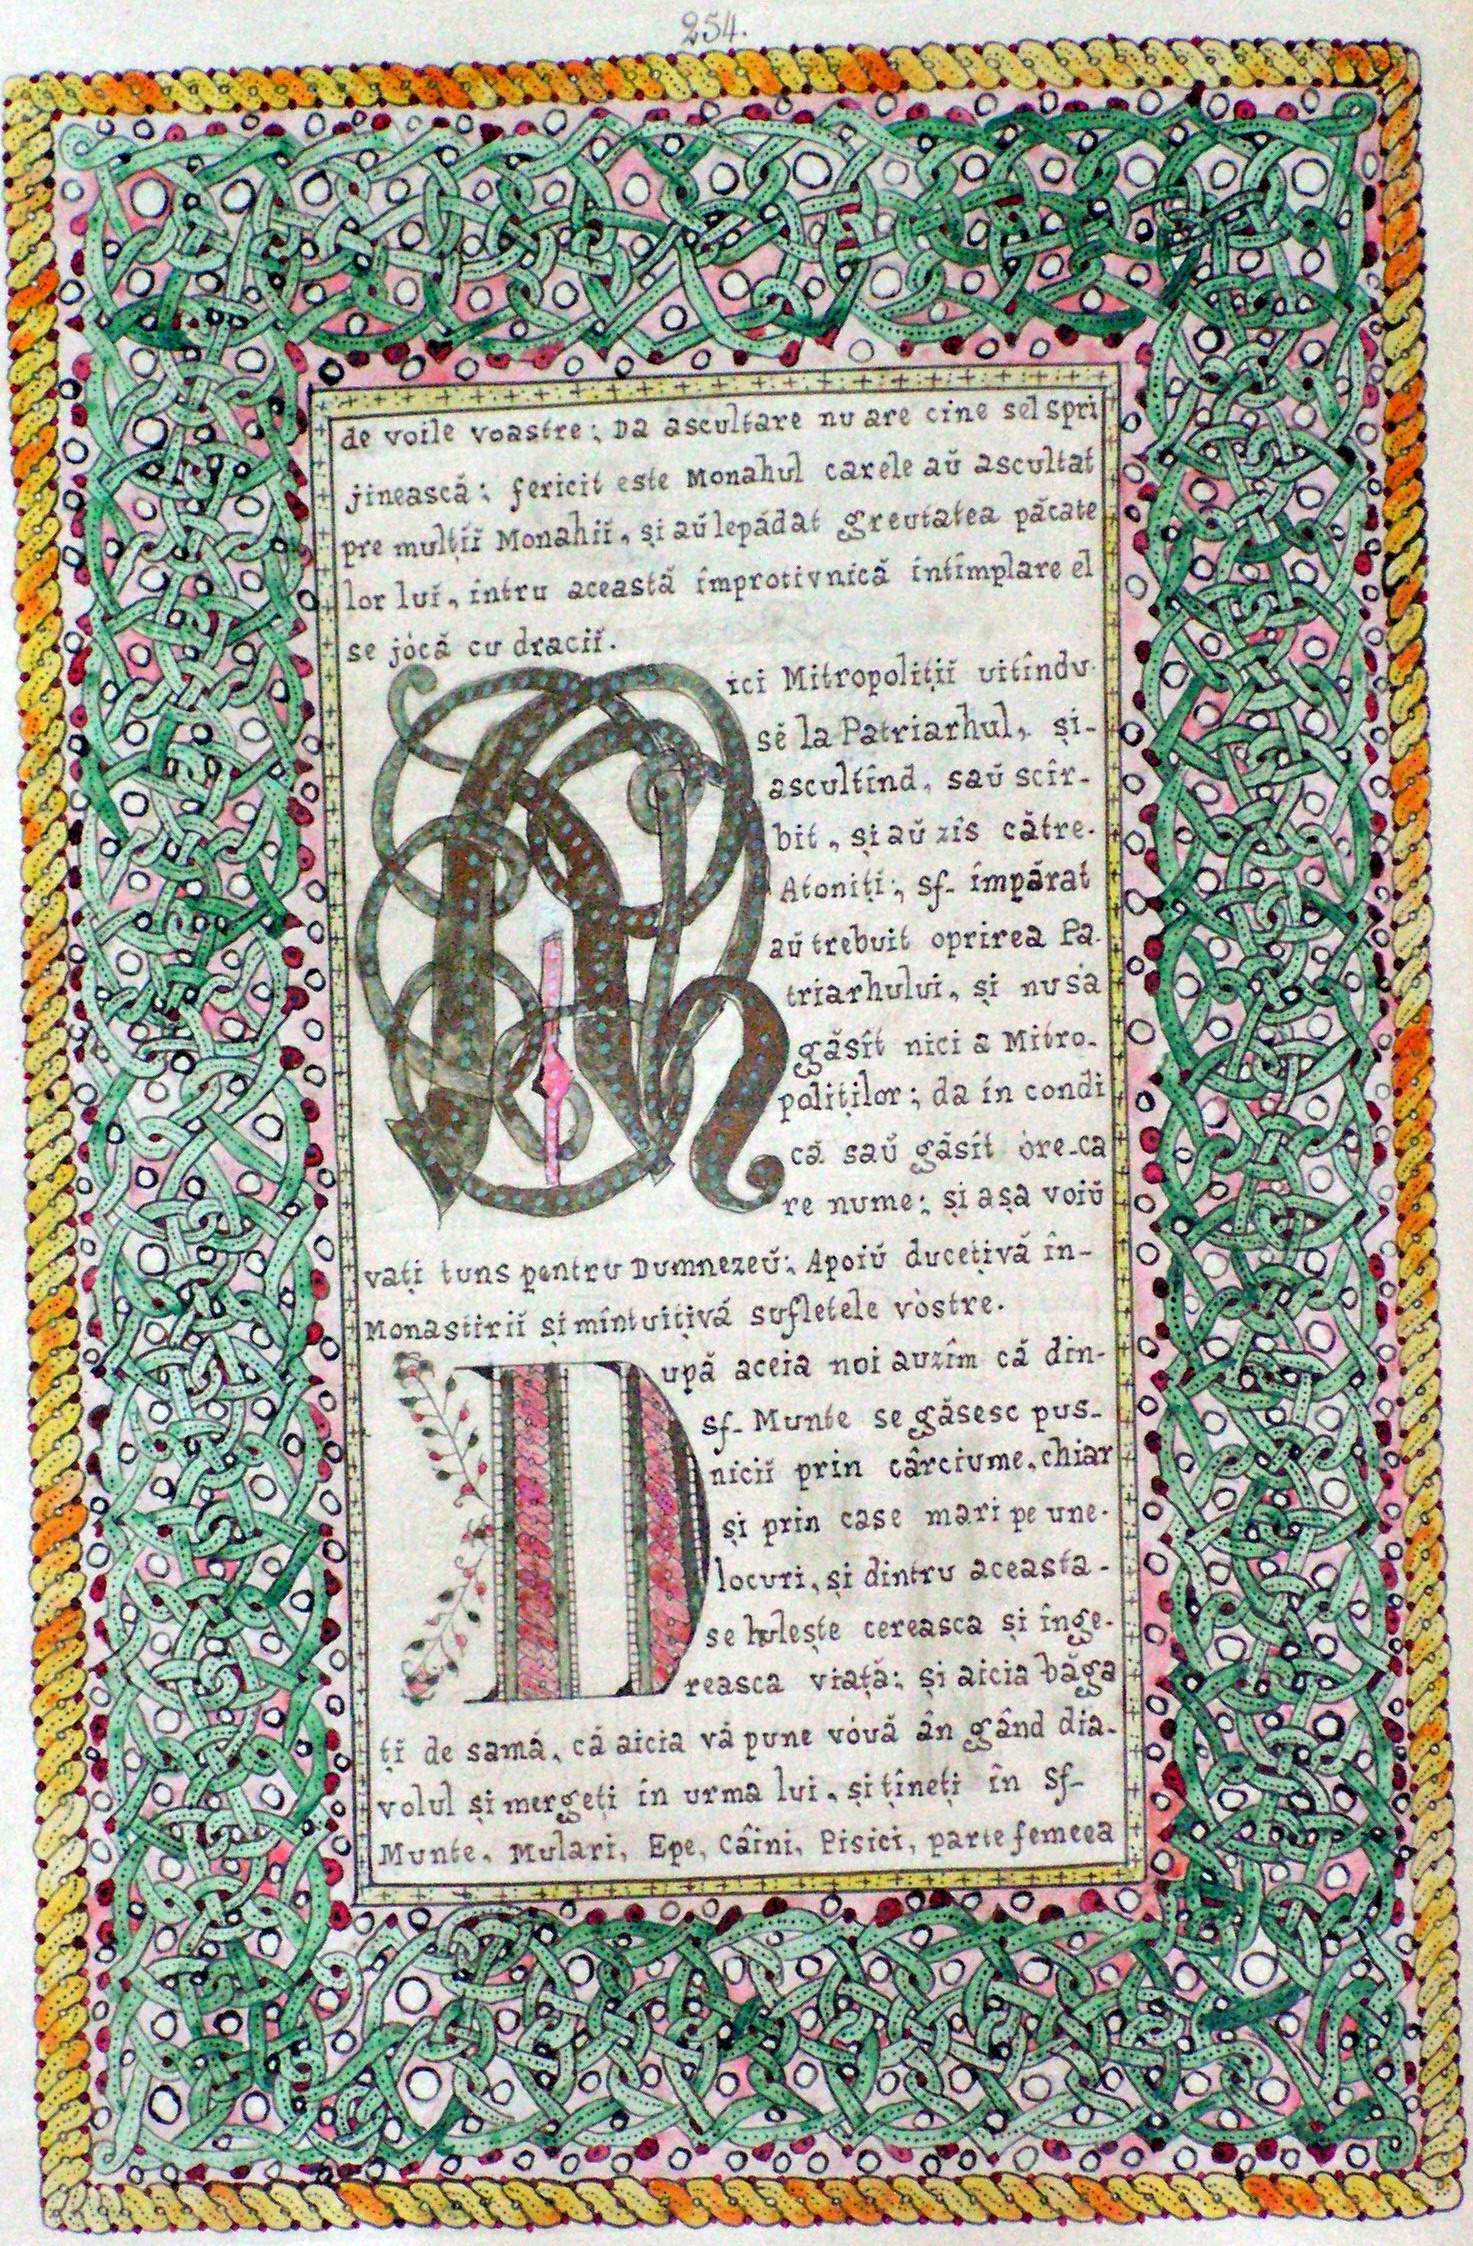 254.
de voile voastre; Da ascultare nu are cine sel spri
jinească; fericit este Monahul carele aŭ ascultat
pre mulțiĭ Monahiĭ, și aŭ lepădat greutatea păcate
lor luĭ, intru această improtivnică intîmplare el
se jócă cu draciĭ.
Nici Mitropolițiĭ uitîndu
sĕ la Patriarhul, și-
ascultînd, saŭ scîr-
bit, și aŭ zîs cătrе-
Atoniți; sf- împărat
aŭ trebuit oprirea Pa-
triarhului, și nu sa
găsît nici a Mitro-
poliților; da în condi
că saŭ găsît òre-ca
re nume; și așa voiŭ
vați tuns pentru Dumnezeŭ; Apoiŭ ducețivă în-
Monastiriĭ și mîntuițivă sufletele vòstre.
După aceia noi auzîm că din-
sf- Munte se găsesc pus-
niciĭ prin cârciume, chiar
și prin case mari pe une-
locuri, și dintru aceasta-
se hulește cereasca și înge-
reasca viață; și aicia băga
țĭ de samă, că aicia vă pune vóuă ân gând dia-
volul și mergeți in urma lui, și țîneți în Sf-
Munte, Mulari, Epe, Câini, Pisici, parte femeea